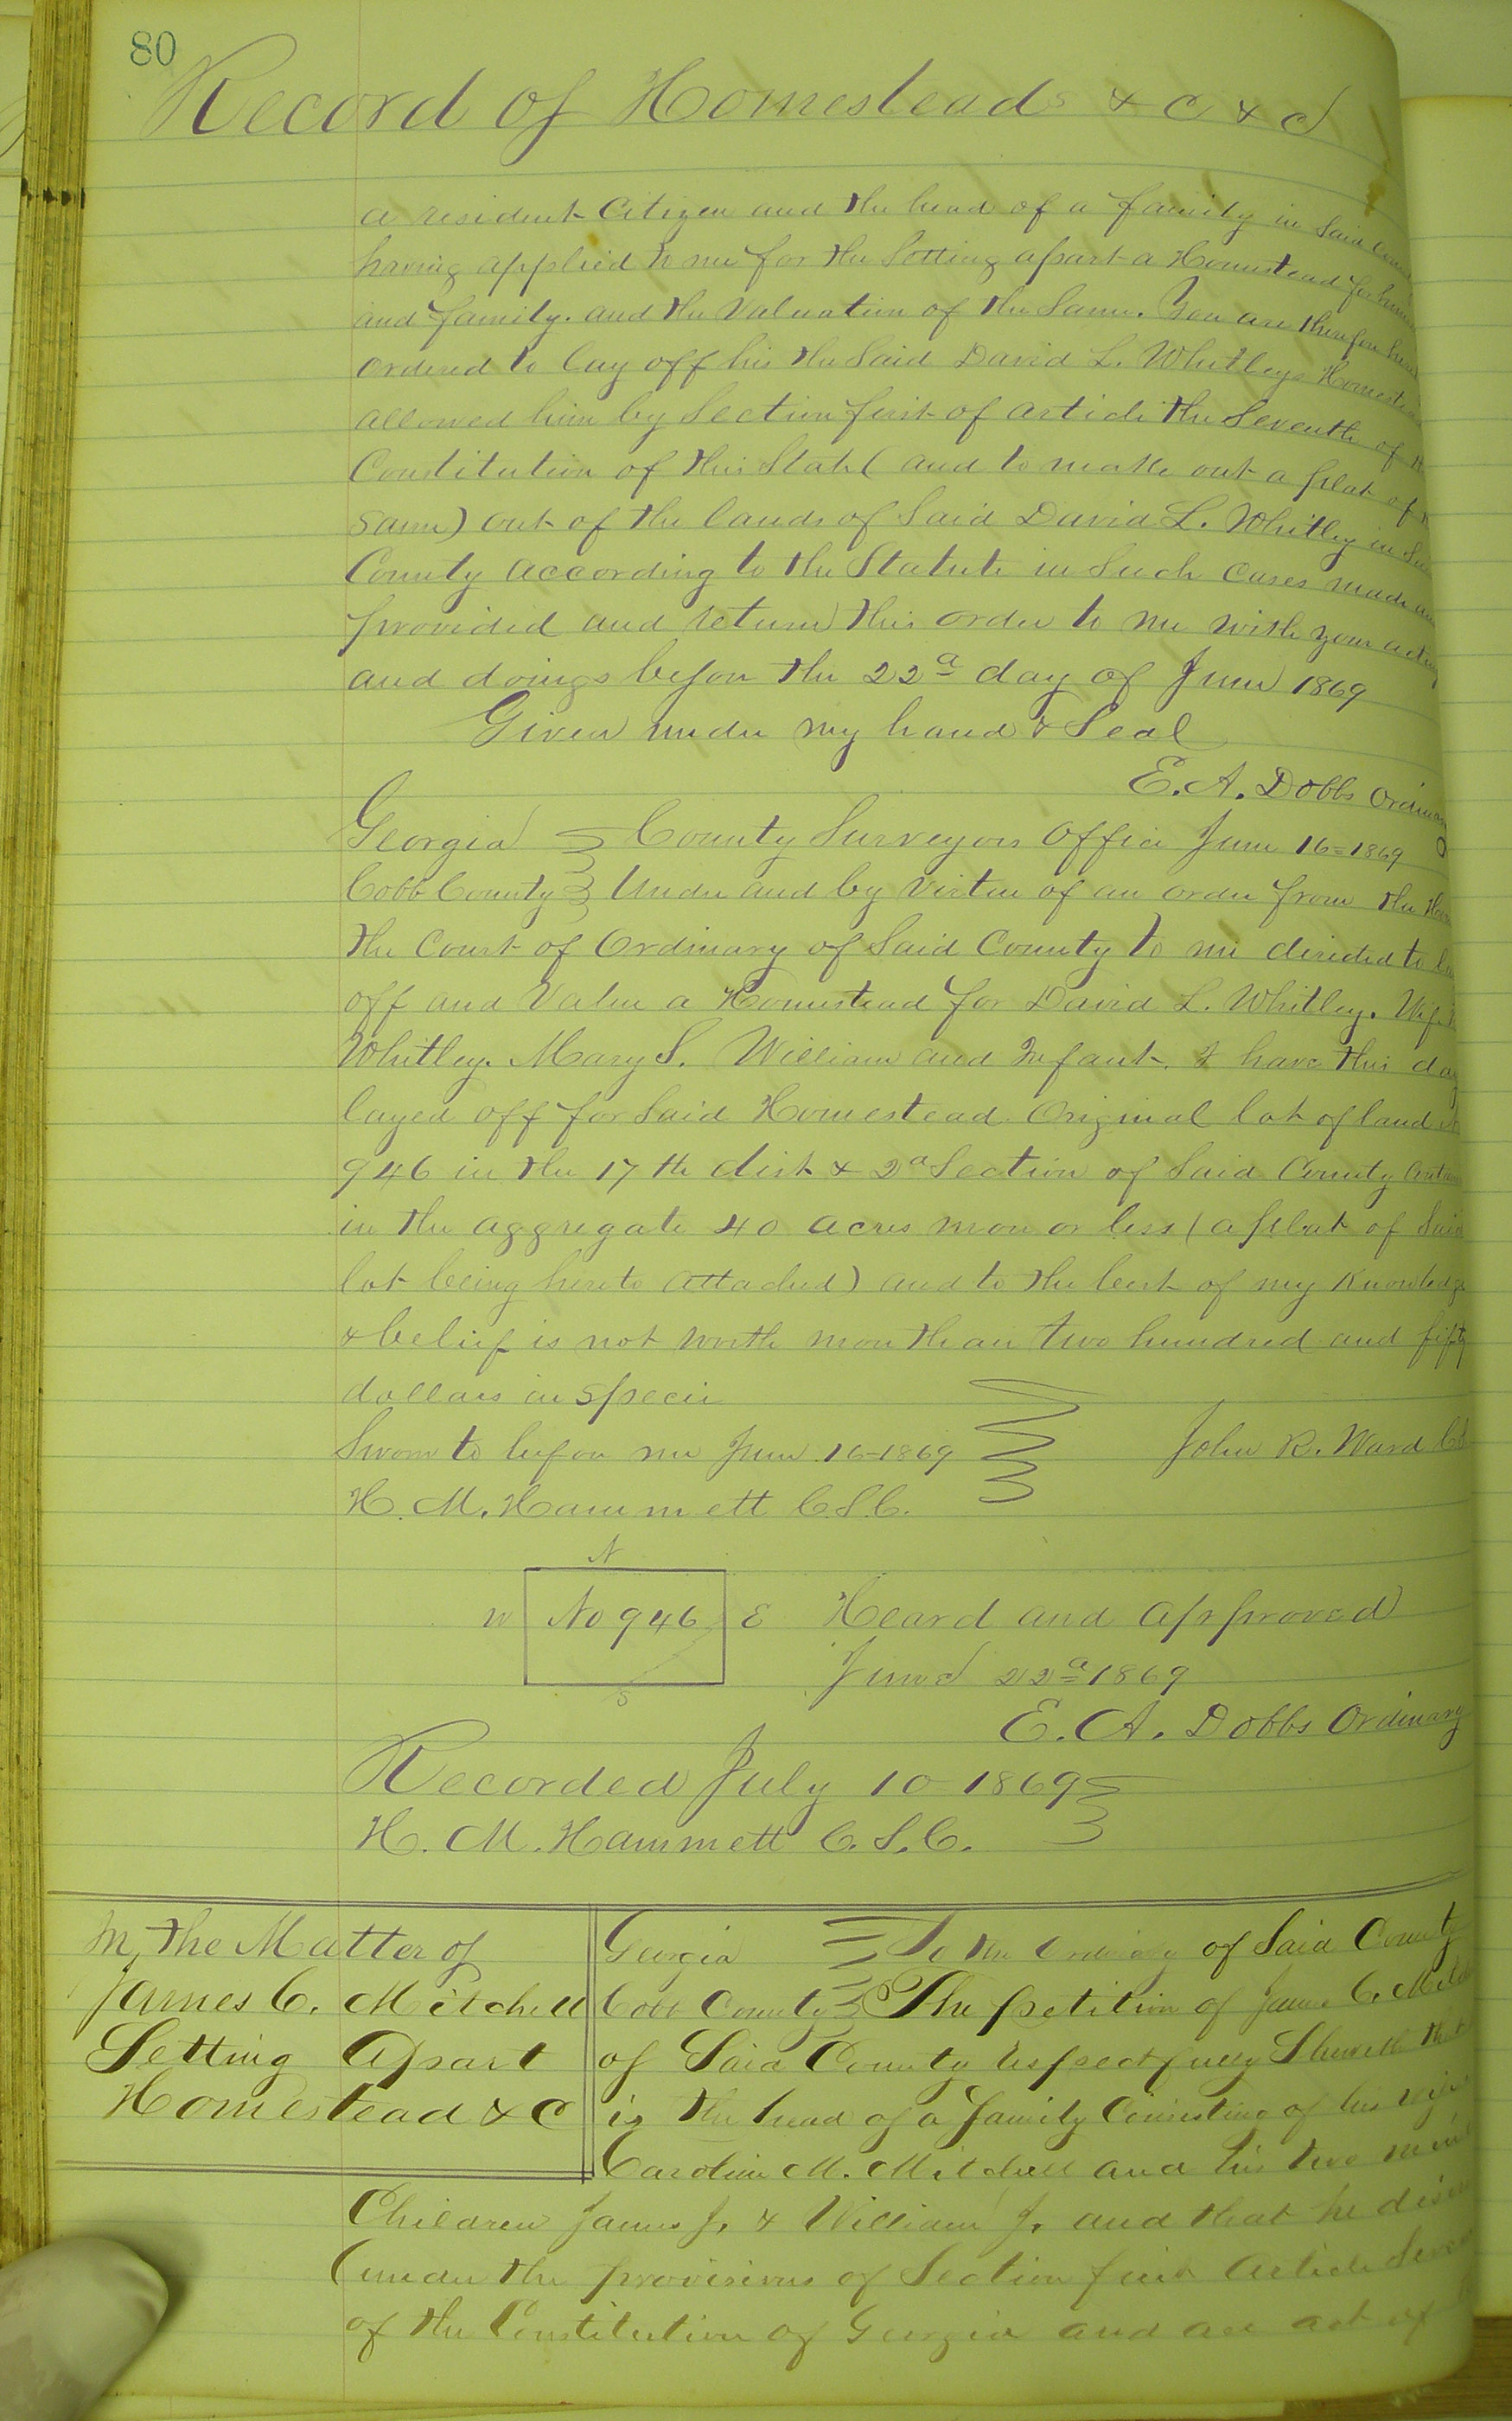 80
Record of Homesteads &c &c
a resident Citizen and the head of a family in Said
having applied to me for the Setting apart a Homestead for
and family. and the Valuation of the Same. You are therefore
ordered to lay off his the Said David L. Whitleys
allowed him by Section first of article the Seventh of
Constitution of this State (and to make out a plat of
Same) out of the lands of Said David L. Whitley in
County according to the Statute in Such Cases made
provided and return this order to me with your
and doings before the 22d day of June 1869
Given under my hand & Seal
E. A. Dobbs Ordinary
Georgia County Surveyors Office June 16=1869
Cobb County Under and by virtue of an order from the
the Court of Ordinary of Said County to me directed to
off and Value a Homestead for David L. Whitley. Wife
Whitley. Mary S. William and Infant. I have this day
layed off for Said Homestead Original lot of land
946 in the 17th dist & 2d Section of Said County
in the aggregate 40 acres more or less (a plat of Said
lot being hereto attached) and to the best of my Knowledge
& belief is not worth more than two hundred and fifty
dollars in Specie
Sworn to before me June 16-1869 John R. Ward
H. M. Hammett C.S.C.
N
W No 946 E Heard and approved
S June 22d 1869
E. A. Dobbs Ordinary
Recorded July 10-1869
H. M. Hammett C.S.C.
In the Matter of Georgia To the Ordinary of Said County
James C. Mitchell Cobb County The petition of James C.
Setting Apart of Said County respectfully Sheweth that
Homestead &C is the head of a family Consisting of his
Caroline M. Mitchell and his two
Children James J. & William J. and that he
(under the provisions of Section first Article
of the Constitution of Georgia and an act of